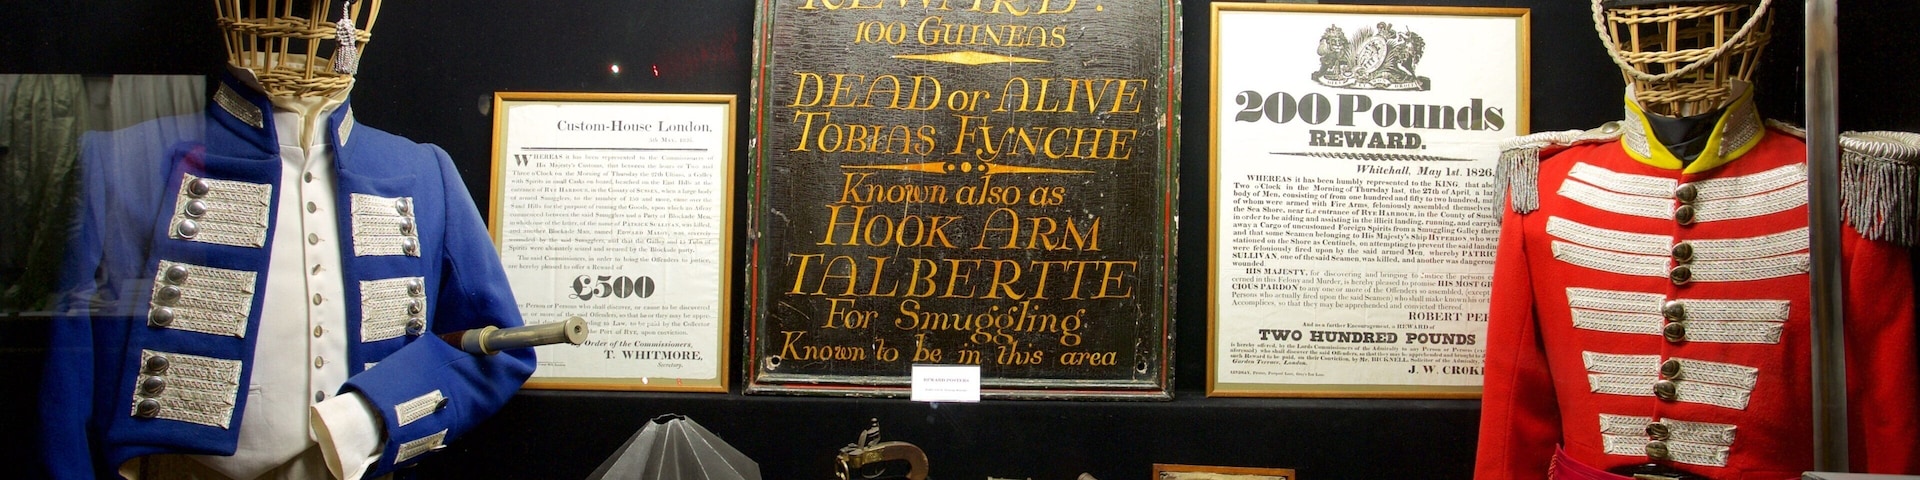 Custom-House London,
WHEREAS it has been represented to the Commissioners of
His Majesty's Customs, that between the hours of Two and
Three o'Clock on the Morning of Thursday the 27th Ultimo, a Galley
with Spirits in small Casks on board,
entrance of RYE HARBOUR, in the County of SUSSEX, when a large body
of armed Smugglers, to the number of
Sand Hills for the purpose of running the Goods, upon which an
commenced between the said Smugglers and a Party of Blockade Men,
in which one of the latter, of the name of PATRICK SULLIVAN, was killed,
and another Blockade Man, named EDWARD
by the said Smugglers, and that the Galley and
Spirits were ultimately seized and secured by the Blockade party.
The said Commissioners, in order to bring the Offenders to justice,
are hereby pleased to offer a Reward of
£500
any Person or Persons who shall discover, or cause to be discovered
paid by the Collector
the Port of RYE, upon conviction.
By Order of the Commissioners,
T. WHITMORE,
Secretary.
REWARD!
100 GUINEAS
DEAD or ALIVE
TOBIAS FYNCHE
Known also as
HOOK ARM
TALBERITE
For Smuggling
Known to be in this area
REWARD POSTERS
200 Pounds
REWARD.
Whitehall, May 1st. 1826.
WHEREAS it has been humbly represented to the KING, that
Two o'Clock in the Morning of Thursday last, the 27th of April, a
body of Men, consisting of from one hundred and fifty to two hundred,
of whom were armed with Fire Arms, feloniously assembled themselves
the Sea Shore, near the entrance of RYE HARBOUR, in the County of
in order to be aiding and assisting in the illicit landing, running, and
away a Cargo of uncustomed Foreign Spirits from a Smuggling Galley
and that some Seamen belonging to His Majesty's Ship HYPERION
stationed on the Shore as Centinels, on attempting to prevent the said
were feloniously fired upon by the said armed Men, whereby
SULLIVAN, one of the said Seamen, was killed, and another was
wounded.
HIS MAJESTY, for discovering and bringing to Justice the persons
cerned in this Felony and Murder, is hereby pleased to promise HIS MOST
CIOUS PARDON to any one or more of the Offenders so assembled, (except
Persons who actually fired upon the said Seamen) who shall make known his or
Accomplices, so that they may be apprehended and convicted thereof.
ROBERT
And as a further Encouragement, a REWARD of
TWO HUNDRED POUNDS
is hereby offered, by the Lords Commissioners of the Admiralty to any Person or Persons
such Reward to be paid, on their Conviction, by Mr. BICKNELL, Solicitor of the Admiralty,
Garden Terrace, London.
J. W.